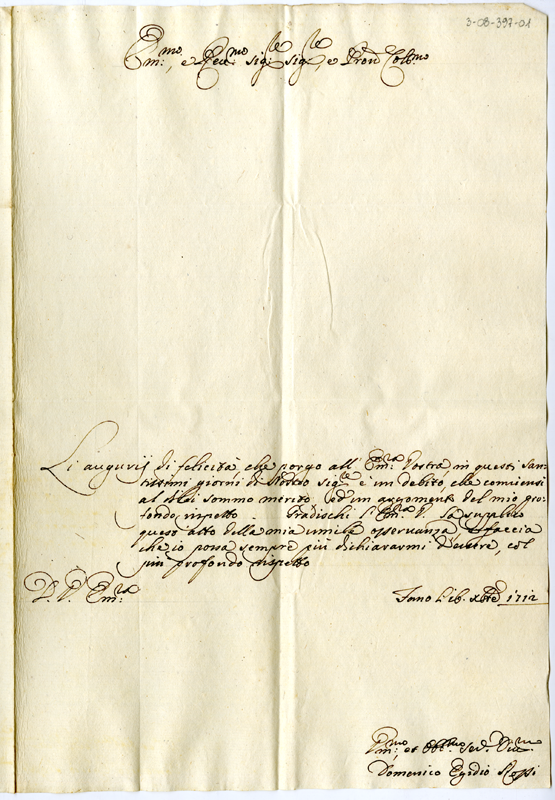 3-08-397-01
Em:mo, e Reu:mo Sig:re Sig:re, e Pron Col:mo
Li augurij di felicità, che porgo all' Em:ra Vostra, in questi San-
tissimi giorni di Nostro Sig:re è un debito, che conuiensi
al di lei sommo merito, ed un argomento del mio pro-
fondo rispetto. Gradischi l' Em:ra V. la supplico
quest' atto della mia umile osseruanza, e faccia
che io possa sempre più dichiararmi d'essere, col
più profondo rispetto
D. V. Em:ra
Fano li 16. Xbre 1712
Um:mo et Obl:mo Ser. Diu:mo
Domenico Egidio Rossi